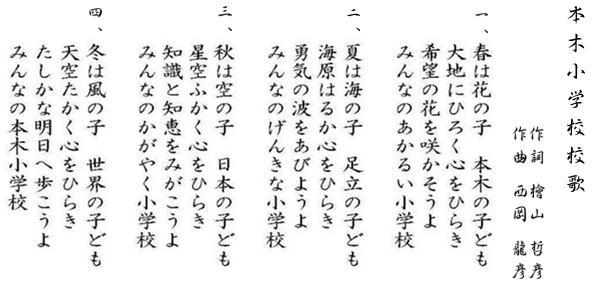 本木小学校校歌
作詞　檜山　哲彦
作曲　西岡　龍彦
一、春は花の子　本木の子ども
大地にひろく心をひらき
希望の花を咲かそうよ
みんなのあかるい小学校
二、夏は海の子　足立の子ども
海原はるか心をひらき
勇気の波をあびようよ
みんなのげんきな小学校
三、秋は空の子　日本の子ども
星空ふかく心をひらき
知識と知恵をみがこうよ
みんなのかがやく小学校
四、冬は風の子　世界の子ども
天空たかく心をひらき
たしかな明日へ歩こうよ
みんなの本木小学校